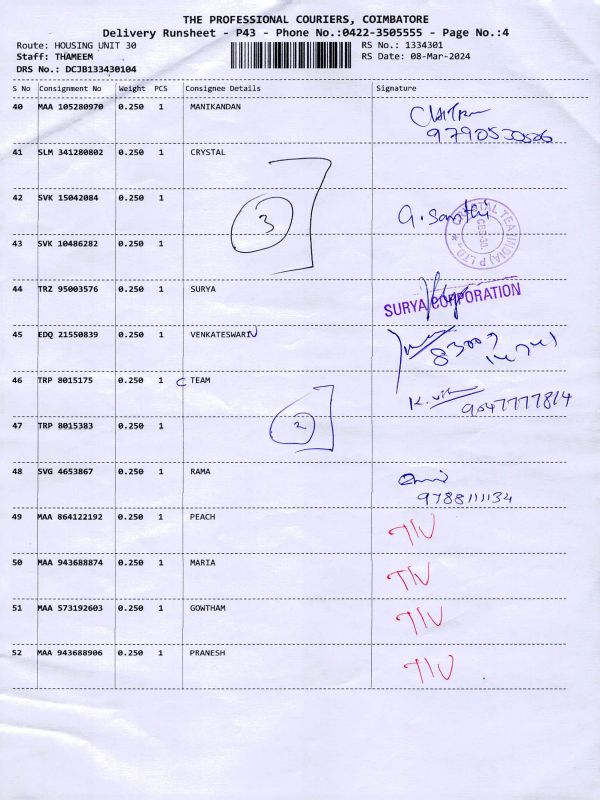 THE PROFESSIONAL COURIERS, COIMBATORE
Delivery Runsheet - P43 - Phone No.:0422-3505555 - Page No.:4
Route: HOUSING UNIT 30 RS No.: 1334301
Staff: THAMEEM RS Date: 08-Mar-2024
DRS No.: DCJB133430104
S No Consignment No Weight PCS Consignee Details Signature
40 MAA 105280970 0.250 1 MANIKANDAN
9790530526
41 SLM 341280802 0.250 1 CRYSTAL
42 SVK 15042084 0.250 1 G. Santhi
3
CRYSTAL TEA (INDIA) P LTD.
CBE-30.
43 SVK 10486282 0.250 1
44 TRZ 95003576 0.250 1 SURYA
SURYA CORPORATION
45 EDQ 21550839 0.250 1 VENKATESWARIN
83007
46 TRP 8015175 0.250 1 C TEAM
9047777814
47 TRP 8015383 0.250 1
2
48 SVG 4653867 0.250 1 RAMA
9788111134
49 MAA 864122192 0.250 1 PEACH
50 MAA 943688874 0.250 1 MARIA
51 MAA 573192603 0.250 1 GOWTHAM
52 MAA 943688906 0.250 1 PRANESH